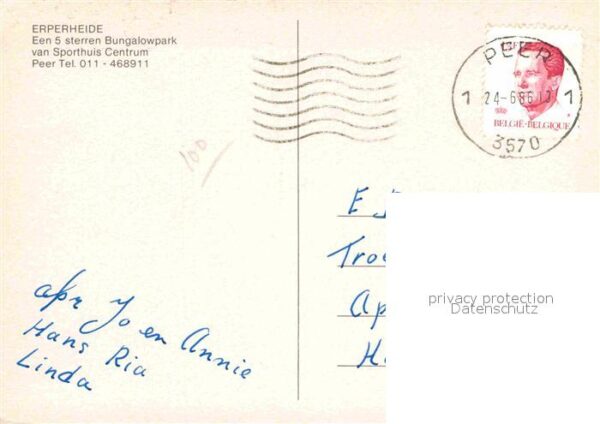 ERPERHEIDE
Een 5 sterren Bungalowpark
van Sporthuis Centrum
Peer Tel. 011 - 468911
PEER
1 24-6 86 1
3570
BELGIË-BELGIQUE
100
E
Troe
Ap
privacy protection
Datenschutz
Jo en Annie
Hans Ria
Linda